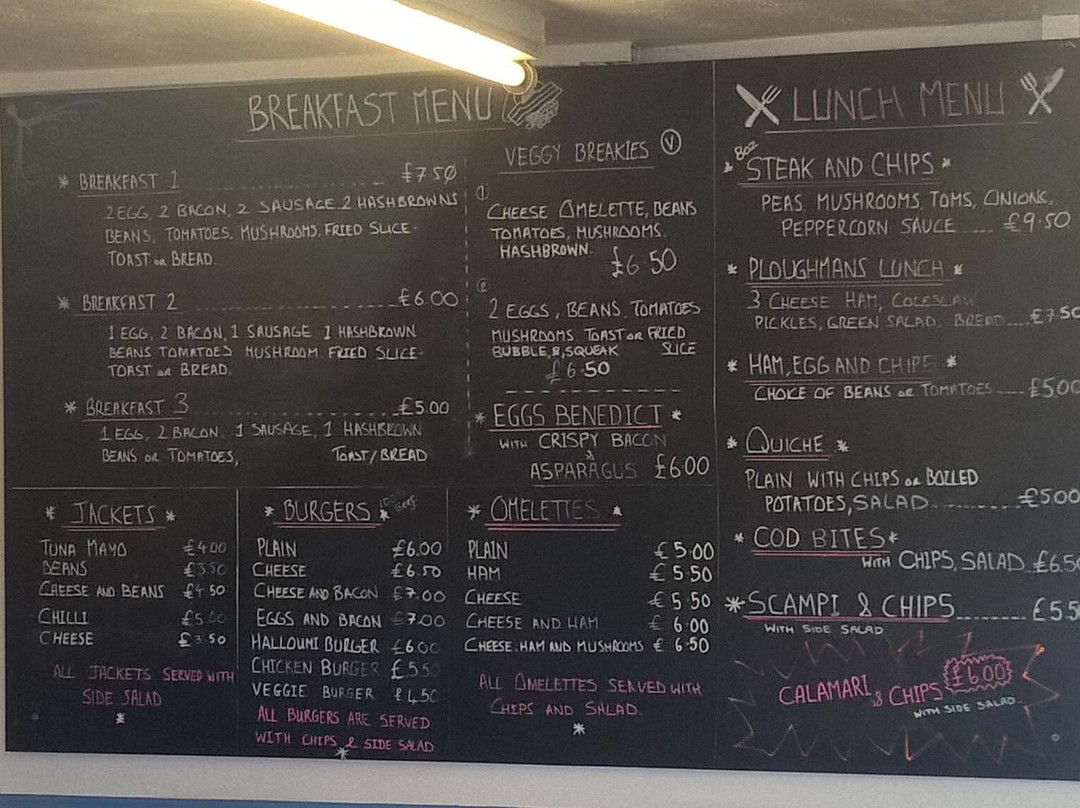 BREAKFAST MENU
* BREAKFAST 1 .................. £7.50
2 EGG, 2 BACON, 2 SAUSAGE 2 HASHBROWNS
BEANS, TOMATOES. MUSHROOMS. FRIED SLICE-
TOAST or BREAD.
* BREAKFAST 2 .................. £6.00
1 EGG, 2 BACON, 1 SAUSAGE 1 HASHBROWN
BEANS TOMATOES MUSHROOM. FRIED SLICE-
TOAST or BREAD.
* BREAKFAST 3 .................. £5.00
1 EGG, 2 BACON, 1 SAUSAGE, 1 HASHBROWN
BEANS or TOMATOES, TOAST/BREAD
VEGGY BREAKIES V
1
CHEESE OMELETTE, BEANS
TOMATOES, MUSHROOMS.
HASHBROWN.
£6.50
2
2 EGGS, BEANS. TOMATOES
MUSHROOMS TOAST or FRIED
BUBBLE, &, SQUEAK SLICE
£6.50
* EGGS BENEDICT *
WITH CRISPY BACON
&
ASPARAGUS £6.00
* JACKETS *
TUNA MAYO £4.00
BEANS £3.50
CHEESE AND BEANS £4.50
CHILLI £5.00
CHEESE £3.50
ALL JACKETS SERVED WITH
SIDE SALAD
*
* BURGERS * 100% Beef
PLAIN £6.00
CHEESE £6.50
CHEESE AND BACON £7.00
EGGS AND BACON £7.00
HALLOUMI BURGER £6.00
CHICKEN BURGER £5.50
VEGGIE BURGER £4.50
ALL BURGERS ARE SERVED
WITH CHIPS & SIDE SALAD
*
* OMELETTES *
PLAIN £5.00
HAM £5.50
CHEESE £5.50
CHEESE AND HAM £6.00
CHEESE, HAM AND MUSHROOMS £6.50
ALL OMELETTES SERVED WITH
CHIPS AND SALAD.
*
LUNCH MENU
8oz
* STEAK AND CHIPS *
PEAS, MUSHROOMS, TOMS, ONIONS,
PEPPERCORN SAUCE ..... £9.50
* PLOUGHMANS LUNCH *
3 CHEESE HAM, COLESLAW
PICKLES, GREEN SALAD, BREAD.....£7.50
* HAM, EGG AND CHIPS *
CHOICE OF BEANS or TOMATOES.....£5.00
* QUICHE *
PLAIN WITH CHIPS or BOILED
POTATOES, SALAD.............£5.00
* COD BITES *
WITH CHIPS, SALAD..£6.50
* SCAMPI & CHIPS ............ £5.5
WITH SIDE SALAD
CALAMARI & CHIPS £6.00
WITH SIDE SALAD..